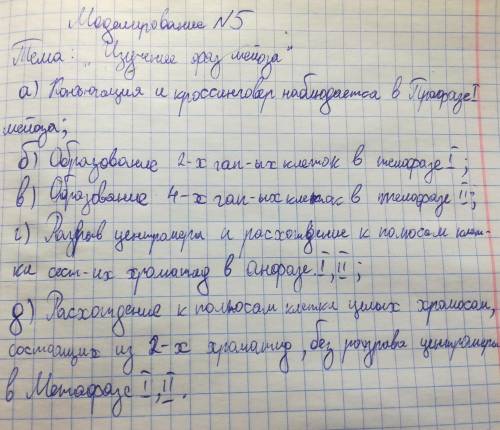 Моделирование №5
Тема: „Изучение фаз мейоза"
а) Конъюгация и кроссинговер наблюдается в Профазе I
мейоза;
б) Образование 2-х гап-ых клеток в телофазе I;
в) Образование 4-х гап-ых клеток в телофазе II;
г) Разрыв центромеры и расхождение к полюсам клет-
ки сест-их хроматид в Анафазе I, II;
д) Расхождение к полюсам клетки целых хромосом,
состоящих из 2-х хроматид, без разрыва центромеры
в Метафазе I, II.